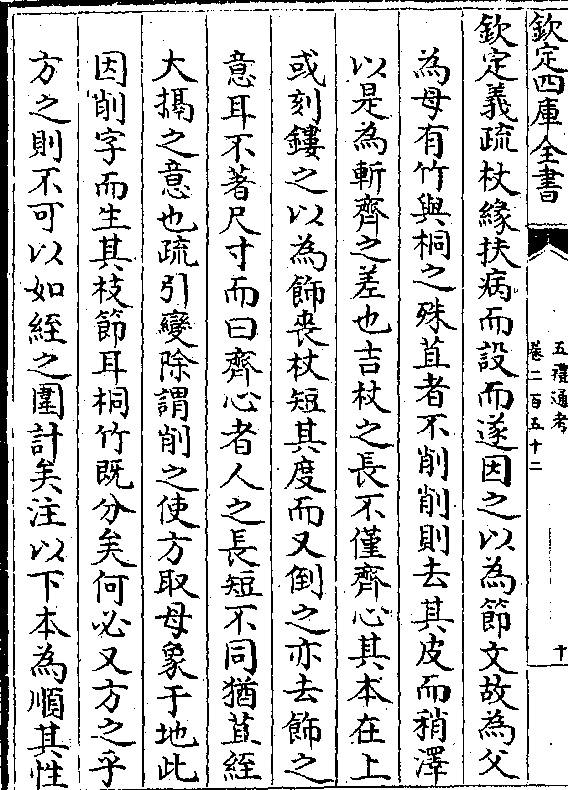 欽定四庫全書
五禮通考
卷二百五十二
十
欽定義疏杖緣扶病而設而遂因之以為節文故為父
為母有竹與桐之殊苴者不削削則去其皮而稍澤
以是為斬齊之差也吉杖之長不僅齊心其本在上
或刻鏤之以為飾喪杖短其度而又倒之亦去飾之
意耳不著尺寸而曰齊心者人之長短不同猶苴絰
大搹之意也疏引變除謂削之使方取母象于地此
因削字而生其枝節耳桐竹既分矣何必又方之乎
方之則不可以如絰之圍計矣注以下本為順其性